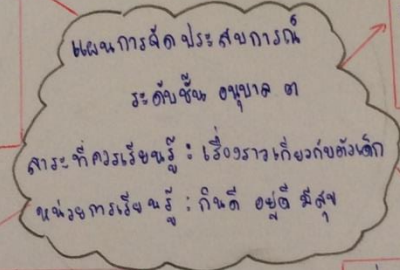 แผนการจัดประสบการณ์
ระดับชั้น อนุบาล ๓
สาระที่ควรเรียนรู้ : เรื่องราวเกี่ยวกับตัวเด็ก
หน่วยการเรียนรู้ : กินดี อยู่ดี มีสุข